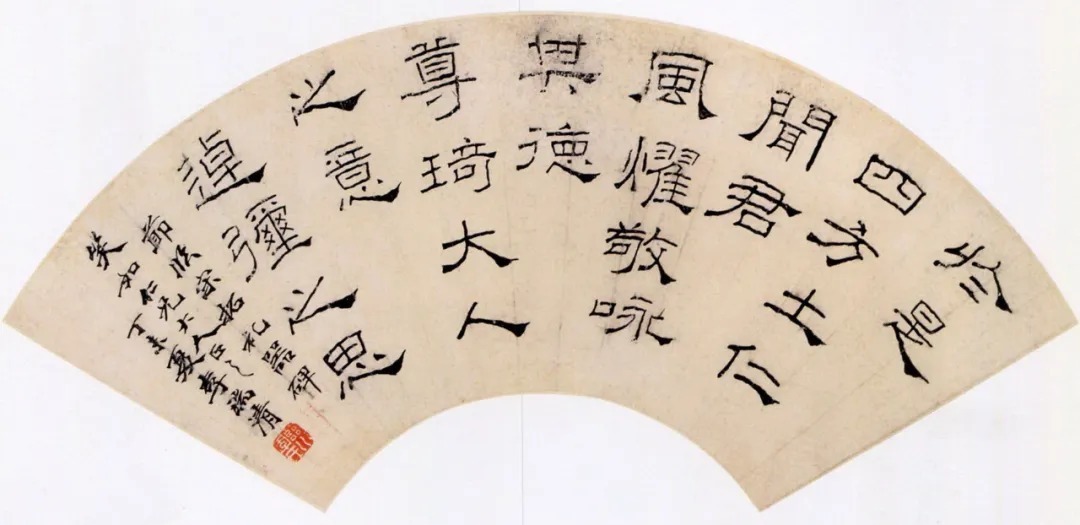 於是
四方士仁
聞君
風燿敬咏
其德
尊琦大人
之意
逴彌之思
節臨宋拓礼器碑
笑和仁兄大人正之
丁未夏李瑞清